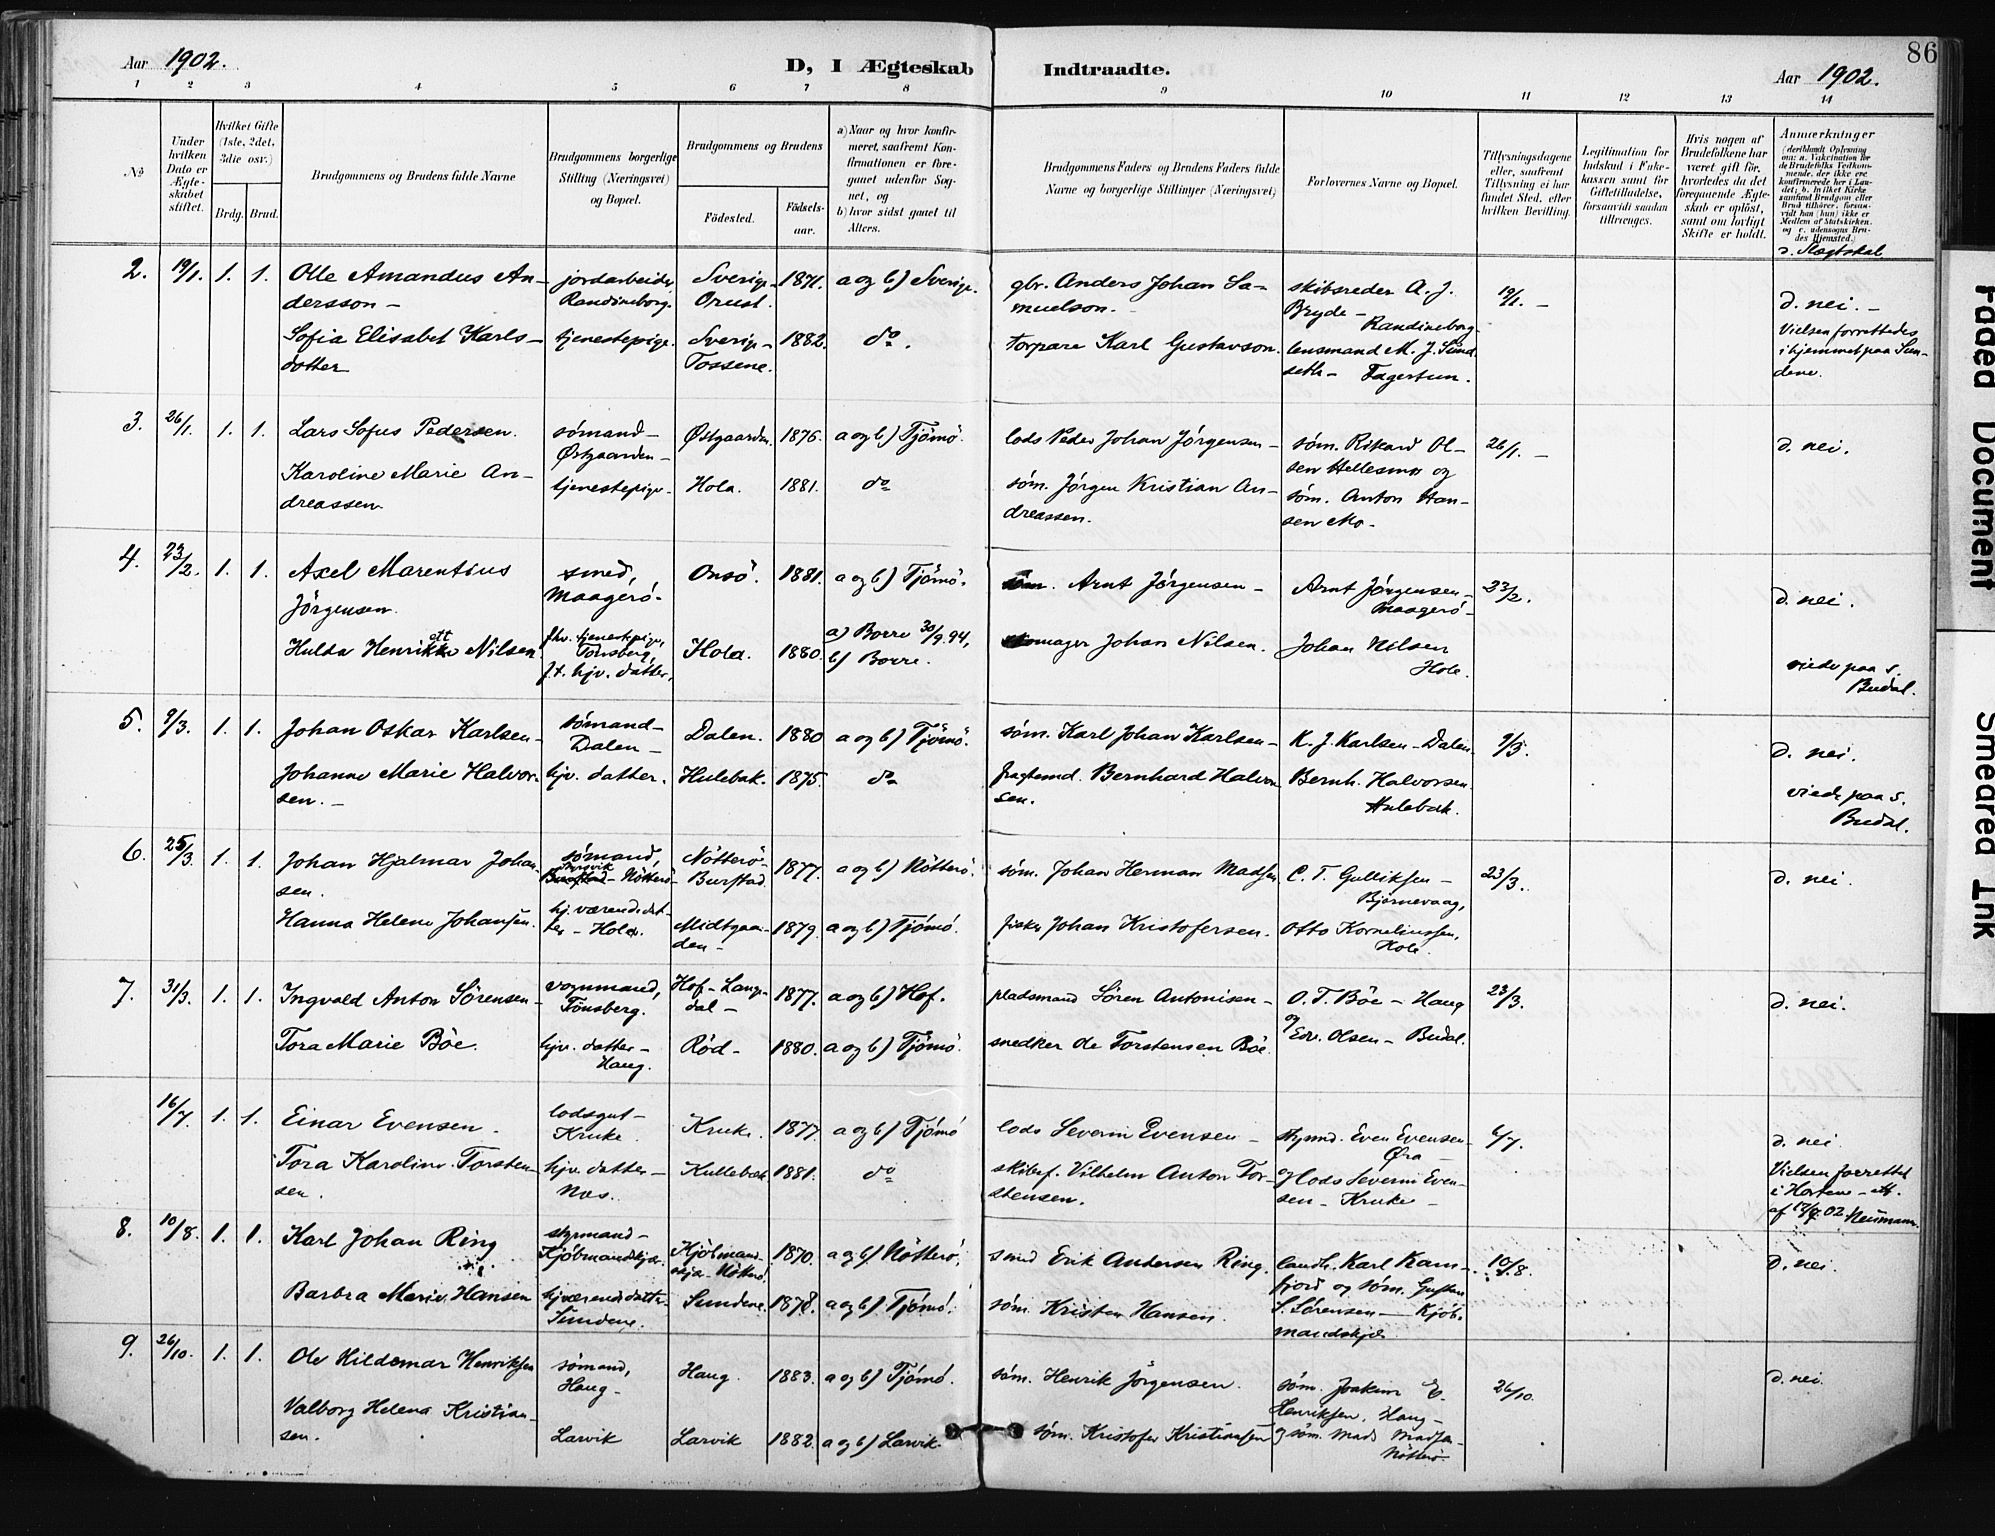 86
Aar 1902.
D, I Ægteskab Indtraadte.
Aar 1902.
1 2 3 4 5 6 7 8 9 10 11 12 13 14
№
Under hvilken Dato er Ægteskabet stiftet.
Hvilket Gifte (1ste, 2det, 3die osv.)
Brdg. Brud.
Brudgommens og Brudens fulde Navne
Brudgommens borgerlige Stilling (Næringsvei) og Bopæl.
Brudgommens og Brudens
Födested.
Födselsaar.
a) Naar og hvor konfirmeret, saafremt Konfirmationen er foregaaet udenfor Sognet, og
b) hvor sidst gaaet til Alters.
Brudgommens Faders og Brudens Faders fulde Navne og borgerlige Stillinger (Næringsvei)
Forlovernes Navne og Bopæl.
Tillysningsdagene eller, saafremt Tillysning ei har fundet Sted, efter hvilken Bevilling.
Legitimation for Indskud i Enkekassen samt for Giftetilladelse, forsaavidt saadan tiltrænges.
Hvis nogen af Brudefolkene har været gift før, hvorledes da det foregaaende Ægteskab er oplöst, samt om lovligt Skifte er holdt.
Anmærkninger
(deriblandt Oplysning om: a. Vakcination for de Brudefolks Vedkommende, der ikke ere konfirmerede her i Landet; b. hvilket Kirkesamfund Brudgom eller Brud tilhører, forsaavidt han (hun) ikke er Medlem af Statskirken, og c. udensogns Brudes Hjemsted.)
d. Slægtskab
2. 19/1. 1. 1. Olle Amandus Andersson – jordarbeider Randineborg. Sverige – Orust. 1871. a og b) Sverige. gbr. Anders Johan Samuelson. – skibsreder A. J. Bryde – Randineborg – 19/1. – d. nei. –
Sofia Elisabet Karlsdotter tjenestepige. Sverige – Tossene. 1882. do. torpare Karl Gustavson. lensmand M. J. Sundseth – Fagertun. Vielsen forrettedes i hjemmet paa Sundene.
3. 26/1. 1. 1. Lars Sofus Pedersen. sømand – Østgaarden – Østgaarden. 1876. a og b) Tjömö. lods Peder Johan Jörgensen – søm. Rikard Olsen Hellesmo og 26/1. – d. nei.
Karoline Marie Andreassen. tjenestepige. Hola. 1881. do søm. Jörgen Kristian Andreassen. søm. Anton Hansen Mo.
4. 23/2. 1. 1. Axel Marentius Jörgensen. smed, Maagerö. Onsö. 1881. a og b) Tjömö. Arnt Jörgensen – Arnt Jörgensen – Maagerö – 23/2. d. nei.
Hulda Henriette Nilsen fhv. tjenestepige, Tönsberg, f.t. hjv. datter, Hola. 1880. a) Borre 30/9.94, b) Borre. Johan Nilsen. Johan Nilsen Hole. viede paa s. Budal.
5. 9/3. 1. 1. Johan Oskar Karlsen – sømand – Dalen – Dalen. 1880 a og b) Tjömö. søm. Karl Johan Karlsen – K. J. Karlsen – Dalen 9/3. d. nei.
Johanne Marie Halvorsen. – hjv. datter. Hulebak. 1875. do fragtemd. Bernhard Halvorsen. Bernh. Halvorsen Hulebak. viede paa s. Budal.
6. 25/3. 1. 1. Johan Hjalmar Johansen. sømand, Nötterö – Nötterö – Burstad. 1877. a og b) Nötterö. søm. Johan Herman Madsen C. T. Gulliksen – Bjørnevaag, 23/3. d. nei.
Hanna Helene Johansen. hj.værende datter – Hola. Midtgaarden – 1879. a og b) Tjömö. fisker Johan Kristofersen. Otto Korneliussen, Hole.
7. 31/3. 1. 1. Ingvald Anton Sörensen – vognmand, Tönsberg. Hof – Langedal – 1877. a og b) Hof. pladsmand Sören Antonisen – O. T. Böe – Haug og 23/3. d. nei.
Tora Marie Böe. hjv. datter – Haug. Röd – 1880. a og b) Tjömö. snedker Ole Torstensen Böe. Edv. Olsen – Budal.
16/7. 1. 1. Einar Evensen. lodsgut – Kruke. Kruke. 1877. a og b) Tjömö lods Severin Evensen – stymd. Even Evensen – Øra – 6/7. d. nei
Tora Karoline Torstensen. hjv. datter – Næs. Kullebak 1881. do skibsf. Vilhelm Anton Torstensen. og lods Severin Evensen – Kruke – Vielsen forrettet i Horten – att. af 17/7.02. Neumann.
8. 10/8. 1. 1. Karl Johan Ring styrmand – Kjöbmandskja. Kjöbmandskja – Nötterö. 1870. a og b) Nötterö. smed Erik Andersen Ring. landh. Karl Kamfjord og søm. Gustav S. Sörensen – Kjöbmandskja 10/8. d. nei.
Barbra Marie Hansen hjværende datter Sundene. Sundene. 1878. a og b) Tjömö. søm. Kristen Hansen.
9. 26/10. 1. 1. Ole Hildemar Henriksen sømand, Haug. Haug. 1883. a og b) Tjömö. søm. Henrik Jörgensen. søm. Joakim E. Henriksen, Haug – 26/10. d. nei.
Valborg Helena Kristiansen. Larvik Larvik 1882. a og b) Larvik. søm. Kristofer Kristiansen og søm. Mads Madsen – Nötterö.
Faded Document
Smeared Ink